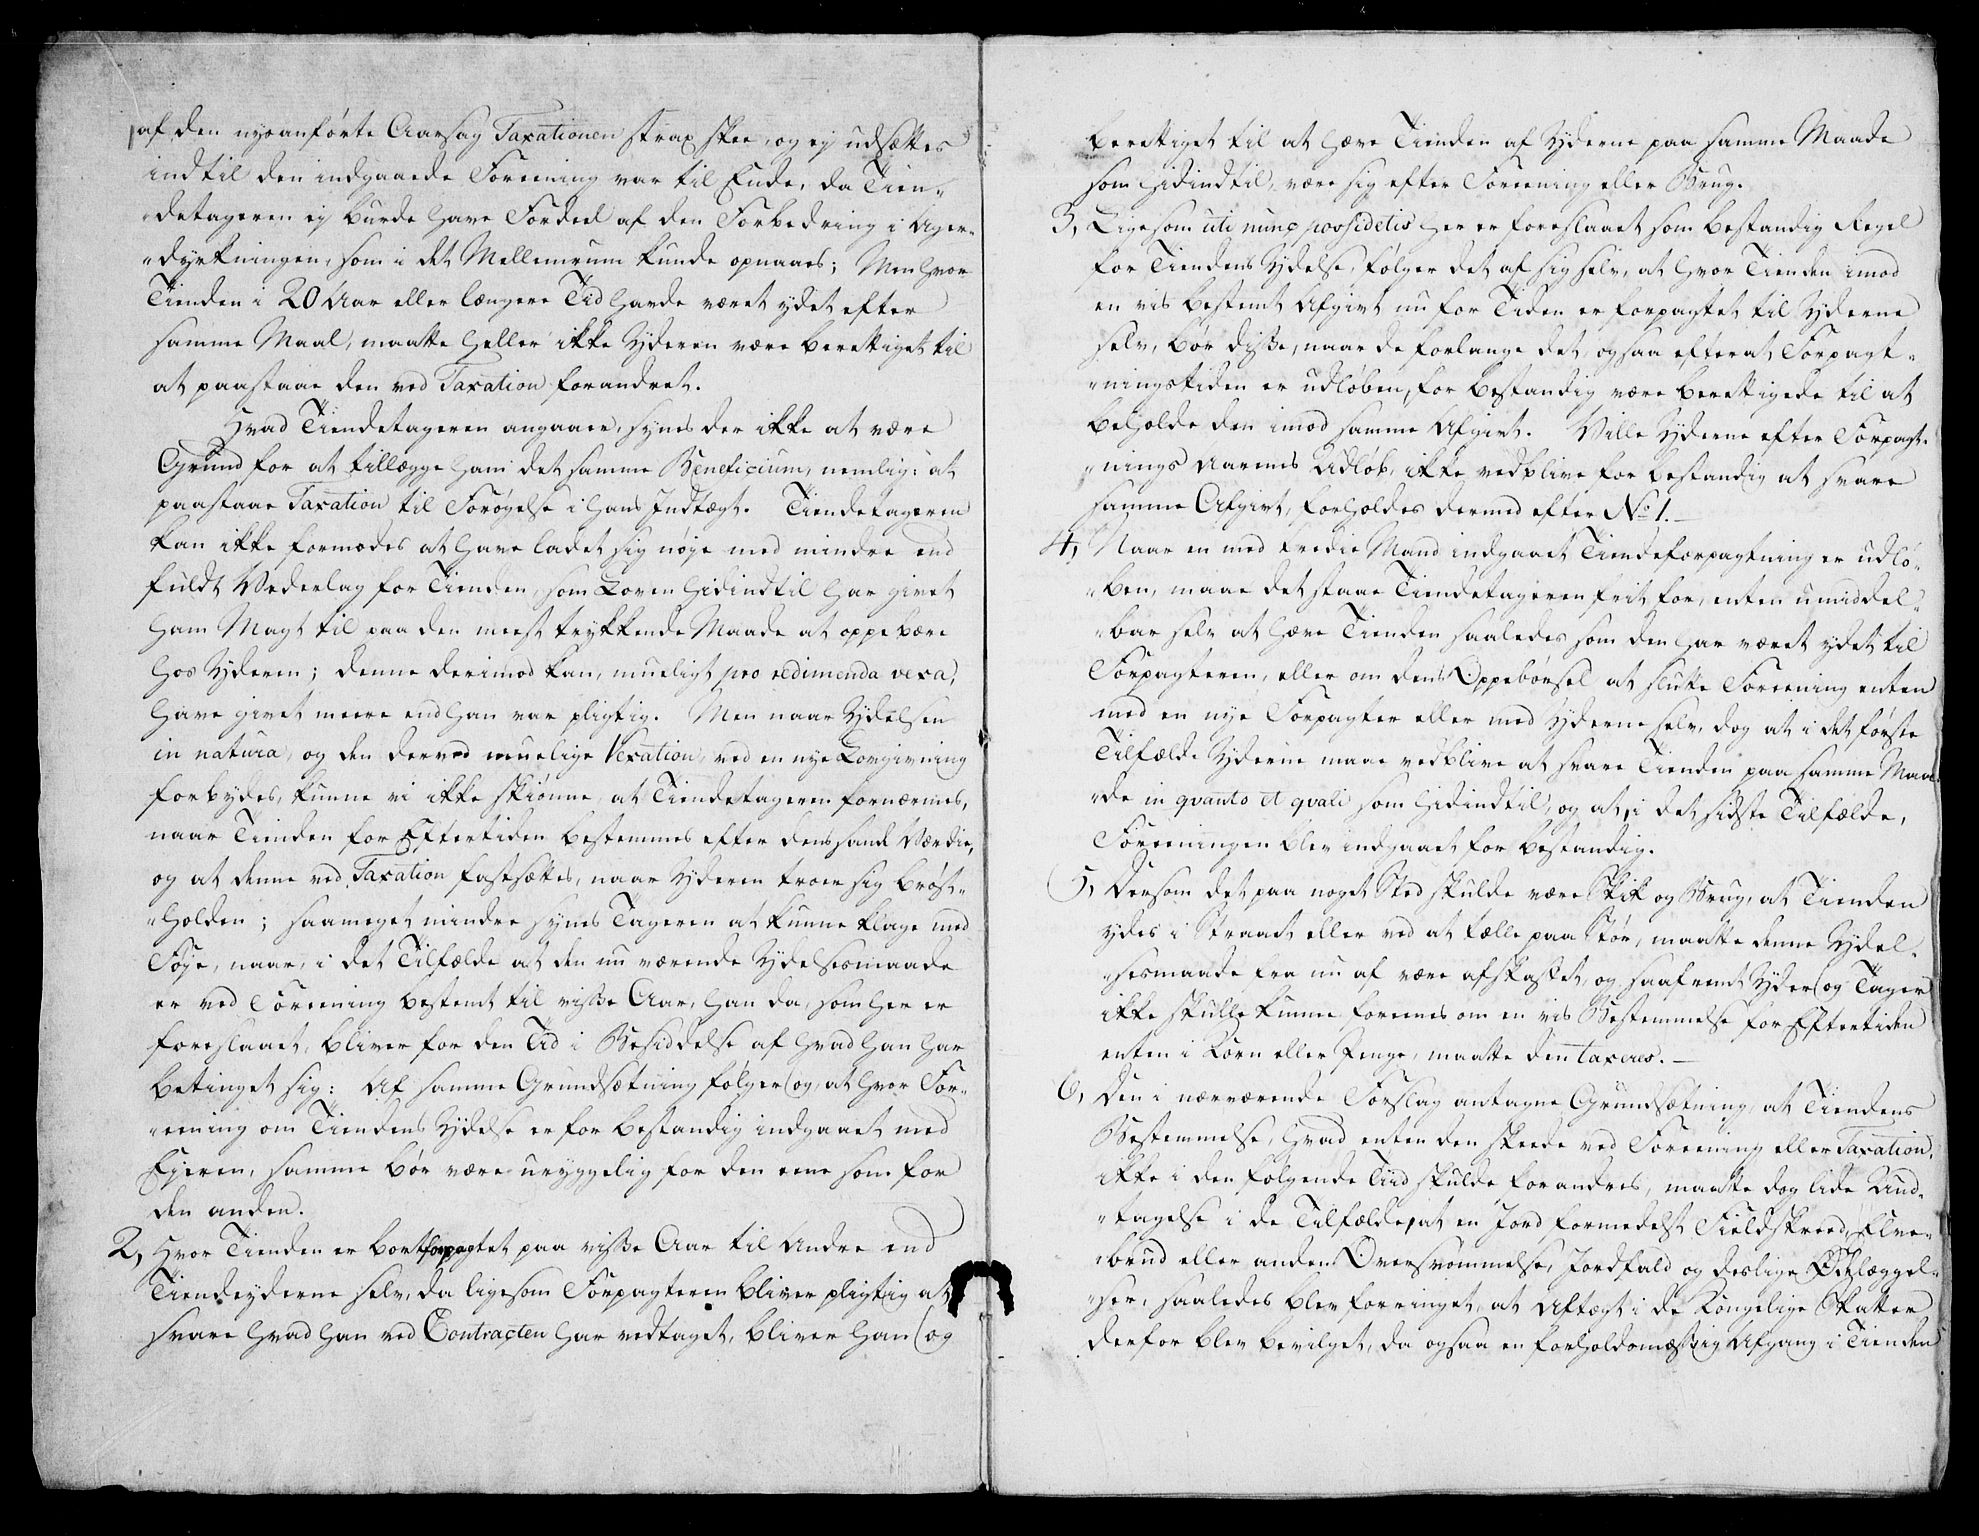 af den nysanførte Aarsag Taxationen strax skee, og ej udsættes
indtil den indgaaede Foreening var til Ende, da Tien-
"detageren ej burde have Fordeel af den Forbedring i Ager-
"dyrkningen, som i det Mellemrum kunde opnaaes; Men hvor
Tienden i 20 Aar eller længere Tid havde været ydet efter
samme Maal, maatte heller ikke Yderen være berettiget til
at paastaae den ved Taxation forandret.
Hvad Tiendetageren angaaer, synes der ikke at være
Grund for at tillægge ham det samme Beneficium, nemlig: at
paastaae Taxation til Forøgelse i hans Indtægt. Tiendetageren
kan ikke formodes at have ladet sig nøje med mindre end
fuldt Vederlag for Tienden, som Loven hidindtil har givet
ham Magt til paa den meest trykkende Maade at oppebære
hos Yderen; denne derimod kan, mueligt pro redimenda vexa,
have givet meere end han var pligtig. Men naar Ydelsen
in natura, og den derved muelige Vexation, ved en nye Lovgivning
forbydes, kunne vi ikke skiønne, at Tiendetageren fornærmes,
naar Tienden for Eftertiden bestemmes efter dens sande Værdie,
og at denne ved Taxation fastsættes, naar Yderen troer sig brøst-
"holden; saameget mindre synes Tageren at kunne klage med
Føje, naar, i det Tilfælde at den nu værende Ydelsesmaade
er ved Foreening bestemt til visse Aar, han da, som her er
foreslaaet, bliver for den Tid i Besiddelse af hvad han har
betinget sig: Af samme Grundsætning følger og, at hvor For-
"eening om Tiendens Ydelse er for bestandig indgaaet med
Ejeren, samme bør være uryggelig for den eene som for
den anden.
2, Hvor Tienden er bortforpagtet paa visse Aar til Andre end
Tiendeyderne selv, da ligesom Forpagteren bliver pligtig at
svare hvad han ved Contracten har vedtaget, bliver han og
berettiget til at hæve Tienden af Yderne paa samme Maade
som hidindtil, være sig efter Foreening eller Brug.
3, Ligesom uti nunc possidetis her er foreslaaet som bestandig Regel
for Tiendens Ydelse, følger det af sig selv, at hvor Tienden imod
en vis bestemt Afgivt nu for Tiden er forpagtet til Yderne
selv, bør disse, naar de forlange det, ogsaa efterat Forpagt-
"ningstiden er udløben, for bestandig være berettigede til at
beholde den imod samme Afgivt. Ville Yderne efter Forpagt-
"nings Aarenes Udløb, ikke vedblive for bestandig at svare
samme Afgivt, forholdes dermed efter No 1.
4, Naar en med tredie Mand indgaaet Tiendeforpagtning er udlø-
"ben, maae det staae Tiendetageren frit for, enten umiddel-
"bar selv at hæve Tienden saaledes som den har været ydet til
Forpagteren, eller om dens Oppebørsel at slutte Foreening enten
med en nye Forpagter eller med Yderne selv, dog at i det første
Tilfælde Yderne maae vedblive at svare Tienden paa samme Maa-
"de in qvanto et qvali som hidindtil, og at, i det sidste Tilfælde,
Foreeningen blev indgaaet for bestandig.
5, Dersom det paa noget Sted skulde være Skik og Brug, at Tienden
ydes i Straaet eller ved at tælle paa Stør, maatte denne Ydel-
"sesmaade fra nu af være afskaffet, og saafremt Yder og Tager
ikke skulle kunne foreenes om en vis Bestemmelse for Eftertiden
enten i Korn eller Penge, maatte den taxeres.
6, Den i nærværende Forslag antagne Grundsætning, at Tiendens
Bestemmelse, hvad enten den skeede ved Foreening eller Taxation,
ikke i den følgende Tiid skulde forandres, maatte dog lide Und-
"tagelse i de Tilfælde, at en Jord formedelst Fieldskreed, Elve-
"brud eller anden Oversvømmelse, Jordfald og deslige Ødelæggel-
"ser, saaledes blev forringet, at Aftægt i de Kongelige Skatter
derfor blev bevilget, da ogsaa en forholdsmæssig Afgang i Tienden